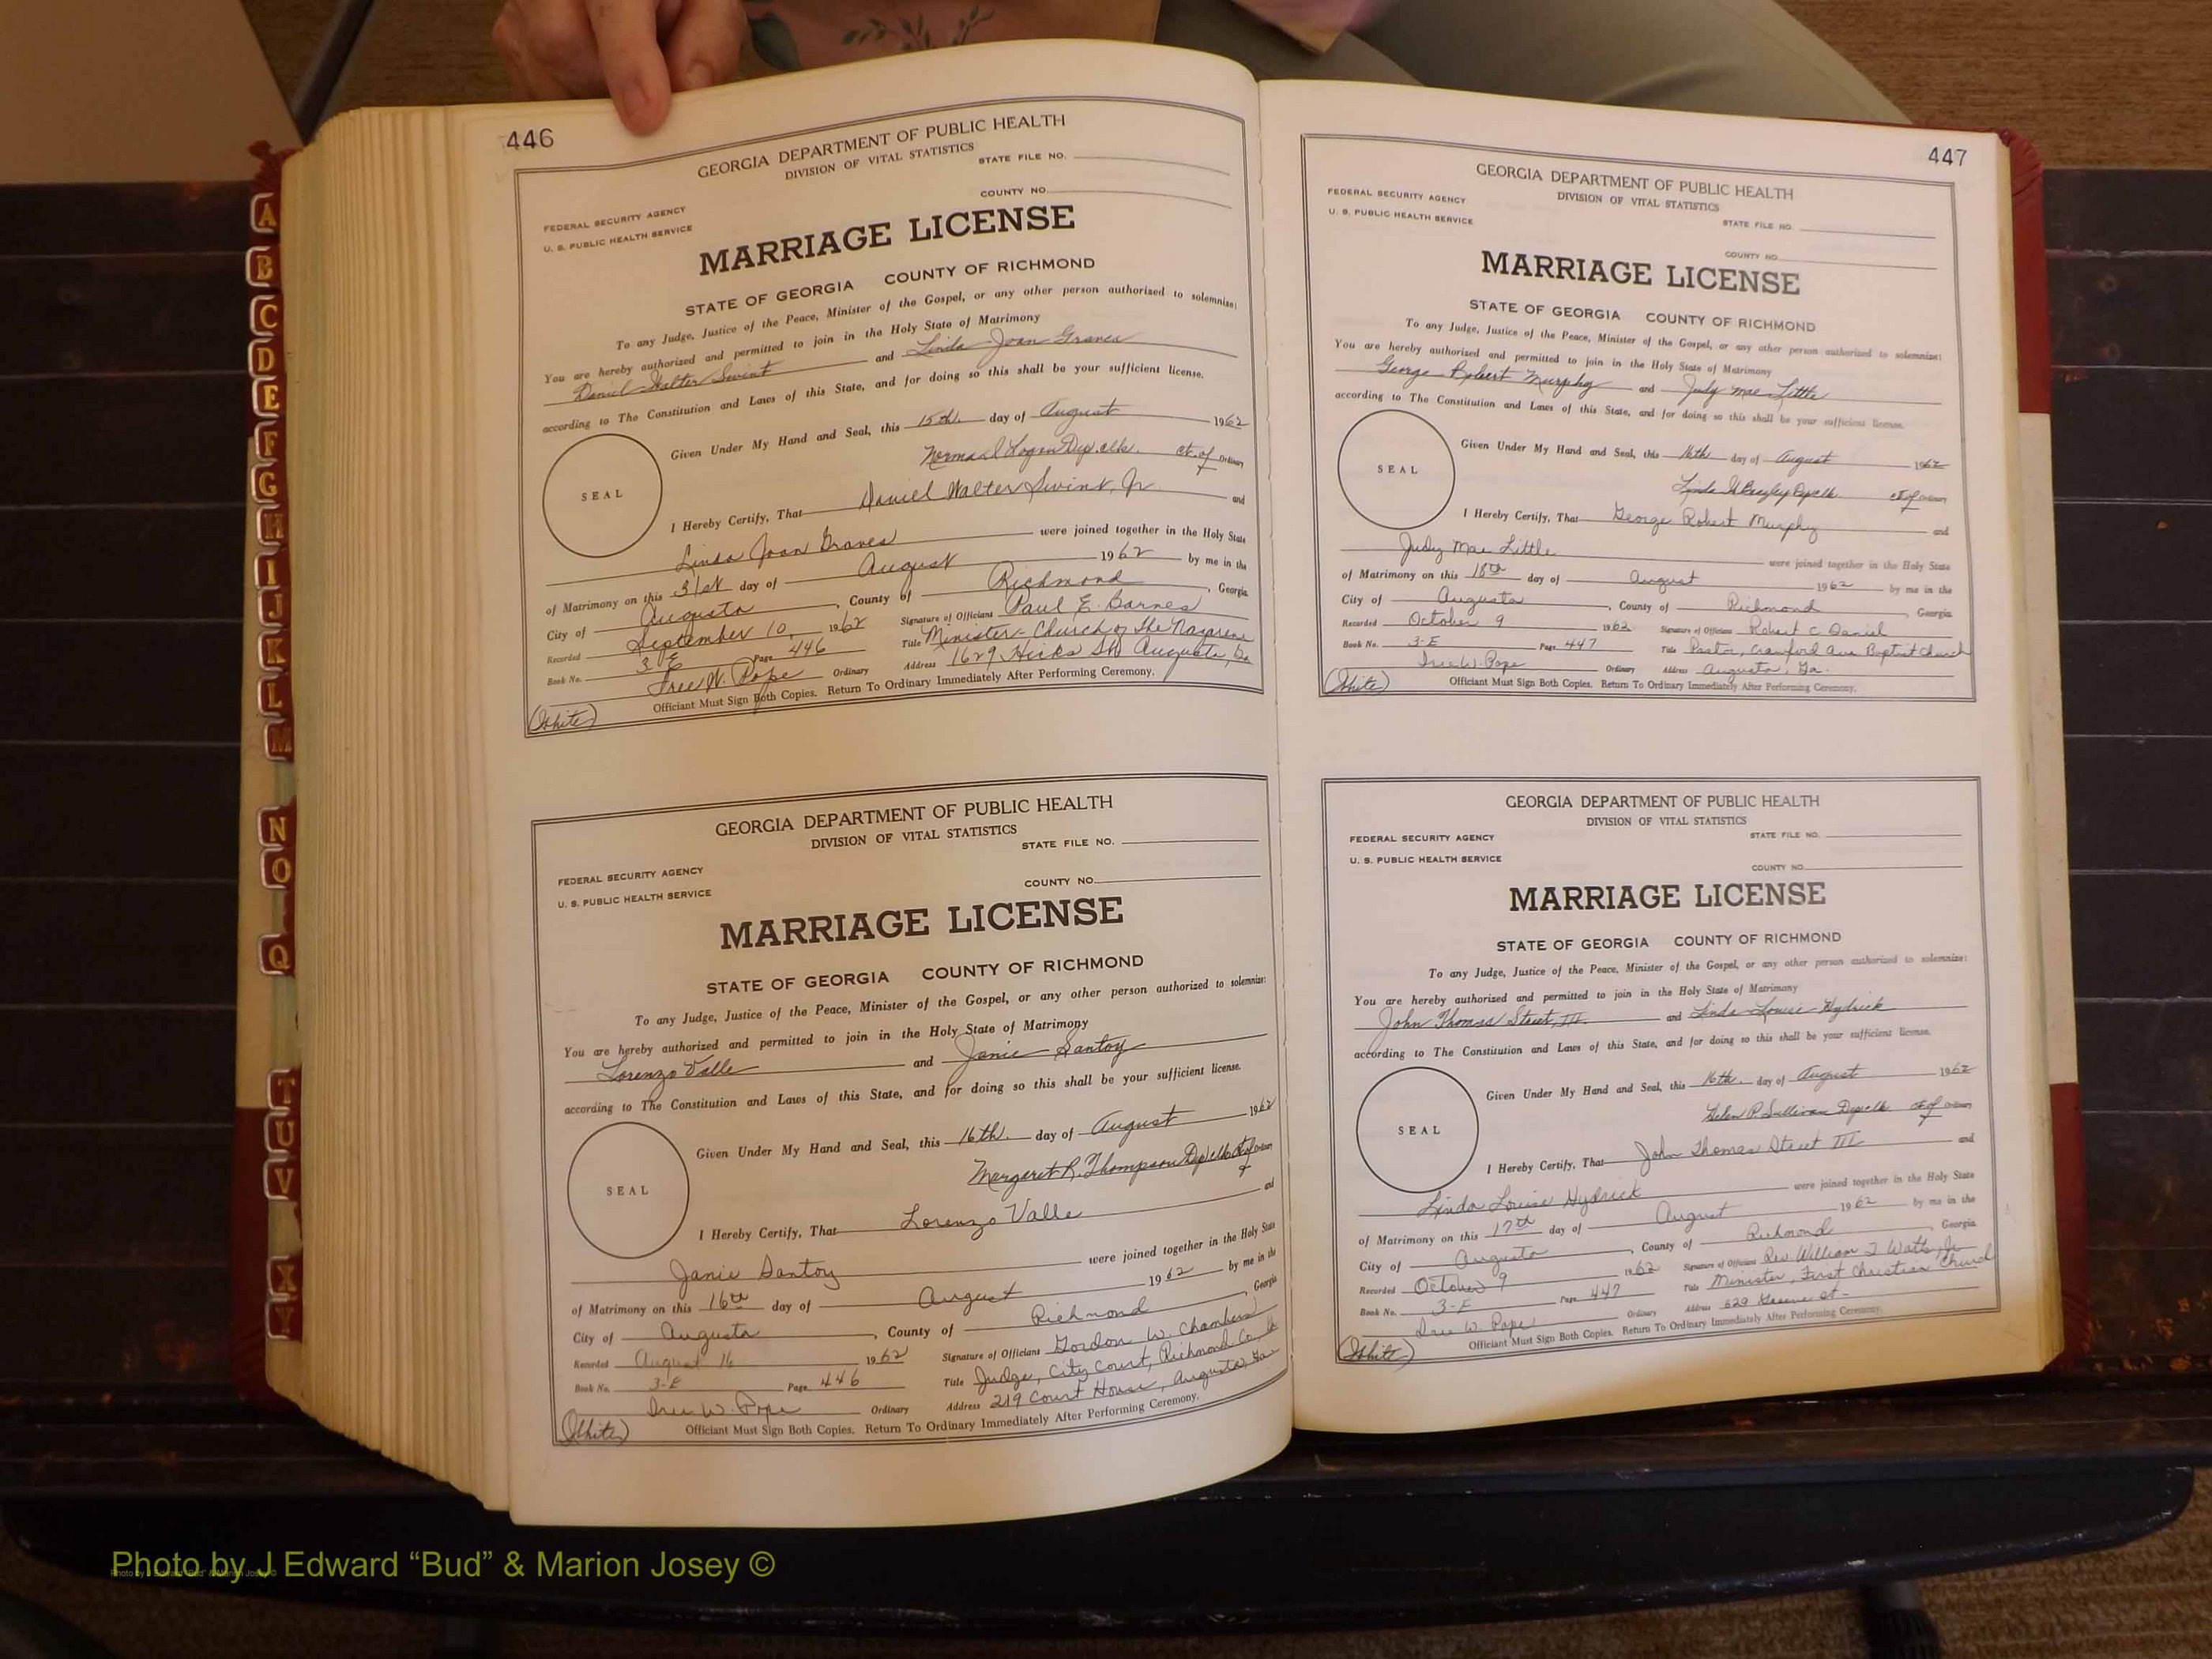 A
B
C
D
E
F
G
H
I
J
K
L
M
N
O
Q
T
U
V
X
Y
446
GEORGIA DEPARTMENT OF PUBLIC HEALTH
DIVISION OF VITAL STATISTICS
STATE FILE NO.
COUNTY NO.
FEDERAL SECURITY AGENCY
U. S. PUBLIC HEALTH SERVICE
MARRIAGE LICENSE
STATE OF GEORGIA COUNTY OF RICHMOND
To any Judge, Justice of the Peace, Minister of the Gospel, or any other person authorized to solemnize:
You are hereby authorized and permitted to join in the Holy State of Matrimony
Daniel Walter Swint and Linda Joan Graves
according to The Constitution and Laws of this State, and for doing so this shall be your sufficient license.
SEAL
Given Under My Hand and Seal, this 15th. day of August 1962
Logan Dep. clk. Ct. of Ordinary
I Hereby Certify, That Daniel Walter Swint, Jr. and
Linda Joan Graves were joined together in the Holy State
of Matrimony on this 31st day of August 1962 by me in the
City of Augusta, County of Richmond, Georgia
Recorded September 10, 1962 Signature of Officiant Paul E. Barnes
Book No. 3 E Page 446 Title Minister - Church of The Nazarene
Iree W. Pope Ordinary Address 1629 Hicks St. Augusta, Ga
(White) Officiant Must Sign Both Copies. Return To Ordinary Immediately After Performing Ceremony.
GEORGIA DEPARTMENT OF PUBLIC HEALTH
DIVISION OF VITAL STATISTICS
STATE FILE NO.
FEDERAL SECURITY AGENCY
COUNTY NO.
U. S. PUBLIC HEALTH SERVICE
MARRIAGE LICENSE
STATE OF GEORGIA COUNTY OF RICHMOND
To any Judge, Justice of the Peace, Minister of the Gospel, or any other person authorized to solemnize:
You are hereby authorized and permitted to join in the Holy State of Matrimony
Lorenzo Valle and Janie Santoy
according to The Constitution and Laws of this State, and for doing so this shall be your sufficient license.
SEAL
Given Under My Hand and Seal, this 16th. day of August 1962
Margaret R. Thompson Dep clk Ct of Ordinary
I Hereby Certify, That Lorenzo Valle and
Janie Santoy were joined together in the Holy State
of Matrimony on this 16th day of August 1962 by me in the
City of Augusta, County of Richmond, Georgia
Recorded August 16 1962 Signature of Officiant Gordon W. Chambers
Book No. 3-E Page 446 Title Judge, City Court, Richmond Co., Ga
Iree W. Pope Ordinary Address 219 Court House, Augusta, Ga
(White) Officiant Must Sign Both Copies. Return To Ordinary Immediately After Performing Ceremony.
447
GEORGIA DEPARTMENT OF PUBLIC HEALTH
DIVISION OF VITAL STATISTICS
FEDERAL SECURITY AGENCY
U. S. PUBLIC HEALTH SERVICE
STATE FILE NO.
COUNTY NO.
MARRIAGE LICENSE
STATE OF GEORGIA COUNTY OF RICHMOND
To any Judge, Justice of the Peace, Minister of the Gospel, or any other person authorized to solemnize:
You are hereby authorized and permitted to join in the Holy State of Matrimony
George Robert Murphy and Judy Mae Little
according to The Constitution and Laws of this State, and for doing so this shall be your sufficient license.
SEAL
Given Under My Hand and Seal, this 16th day of August 1962
Linda H. Dep clk. Ct. of Ordinary
I Hereby Certify, That George Robert Murphy and
Judy Mae Little were joined together in the Holy State
of Matrimony on this 18th day of August 1962 by me in the
City of Augusta, County of Richmond, Georgia
Recorded October 9 1962 Signature of Officiant Robert C. Daniel
Book No. 3-E Page 447 Title Pastor, Crawford Ave Baptist Church
Iree W. Pope Ordinary Address Augusta, Ga.
(White) Officiant Must Sign Both Copies. Return To Ordinary Immediately After Performing Ceremony.
GEORGIA DEPARTMENT OF PUBLIC HEALTH
DIVISION OF VITAL STATISTICS
FEDERAL SECURITY AGENCY STATE FILE NO.
U. S. PUBLIC HEALTH SERVICE
COUNTY NO.
MARRIAGE LICENSE
STATE OF GEORGIA COUNTY OF RICHMOND
To any Judge, Justice of the Peace, Minister of the Gospel, or any other person authorized to solemnize:
You are hereby authorized and permitted to join in the Holy State of Matrimony
John Thomas Street, III. and Linda Louise Hydrick
according to The Constitution and Laws of this State, and for doing so this shall be your sufficient license.
SEAL
Given Under My Hand and Seal, this 16th. day of August 1962
Helen P. Sullivan Dep clk Ct of Ordinary
I Hereby Certify, That John Thomas Street III and
Linda Louise Hydrick were joined together in the Holy State
of Matrimony on this 17th day of August 1962 by me in the
City of Augusta, County of Richmond, Georgia
Recorded October 9 1962 Signature of Officiant Rev William T Watts, Jr
Book No. 3-E Page 447 Title Minister, First Christian Church
Iree W. Pope Ordinary Address 629 Greene St-
(White) Officiant Must Sign Both Copies. Return To Ordinary Immediately After Performing Ceremony.
Photo by J Edward “Bud” & Marion Josey ©
Photo by J Edward "Bud" & Marion Josey ©